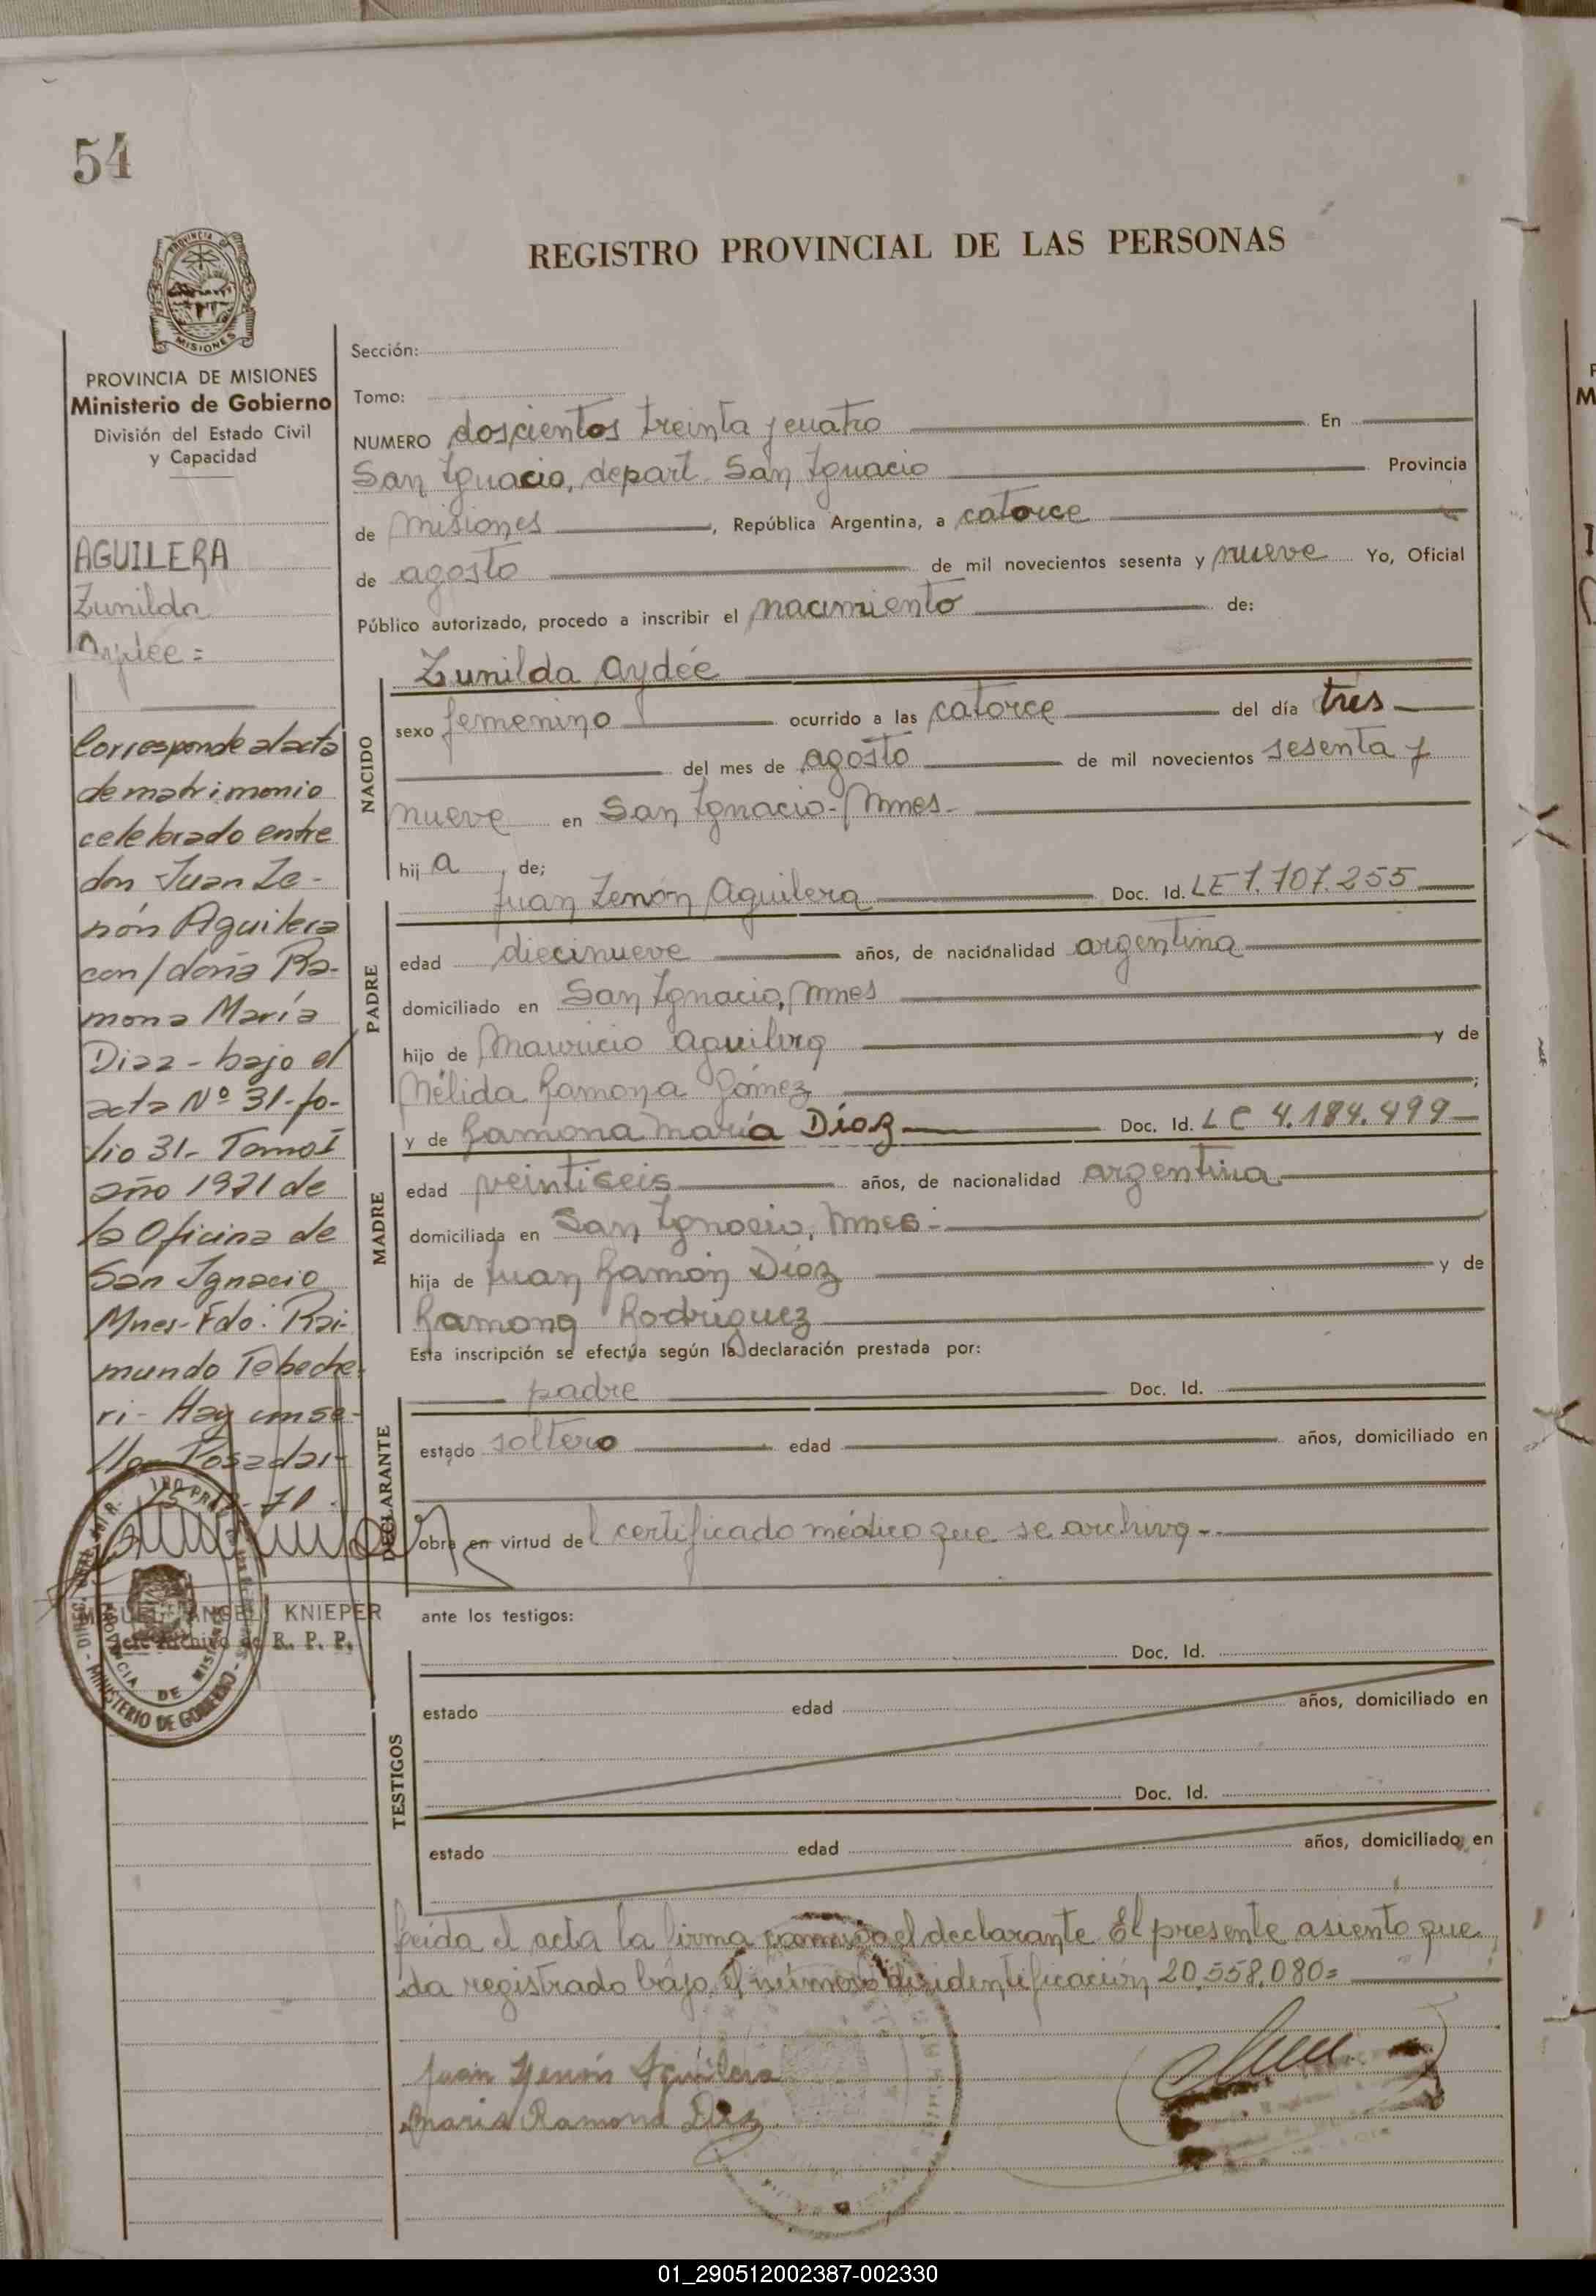 54
REGISTRO PROVINCIAL DE LAS PERSONAS
PROVINCIA
MISIONES
PROVINCIA DE MISIONES
Ministerio de Gobierno
División del Estado Civil
y Capacidad
AGUILERA
Zunilda
Aydee =
Corresponde al acta
de matrimonio
celebrado entre
don Juan Ze-
nón Aguilera
con/doña Ra-
mona María
Diaz - bajo el
acta Nº 31- fo-
lio 31- Tomo I
año 1971 de
la Oficina de
San Ignacio
Mnes- Fdo: Rai-
mundo Tebeche-
ri- Hay un se-
llo- Posadas-
MIGUEL ANGEL KNIEPER
Jefe Archivo de R. P. P.
MINISTERIO DE GOBIERNO
PROVINCIA DE MISIONES
Sección:
Tomo:
NUMERO doscientos treinta y cuatro En
San Ignacio, depart. San Ignacio Provincia
de Misiones, República Argentina, a catorce
de agosto de mil novecientos sesenta y nueve Yo, Oficial
Público autorizado, procedo a inscribir el nacimiento de:
NACIDO
Zunilda Aydée
sexo femenino ocurrido a las catorce del día tres
del mes de agosto de mil novecientos sesenta y
nueve en San Ignacio- Mnes-
hij a de;
PADRE
Juan Zenón Aguilera Doc. Id. LE 1.707.255
edad diecinueve años, de nacionalidad argentina
domiciliado en San Ignacio, Mnes
hijo de Mauricio Aguilera y de
Nélida Ramona Gómez ;
MADRE
y de Ramona María Díaz Doc. Id. LC 4.184.499
edad veintiseis años, de nacionalidad argentina
domiciliada en San Ignacio, Mnes-
hija de Juan Ramón Díaz y de
Ramona Rodriguez
Esta inscripción se efectúa según la declaración prestada por:
DECLARANTE
padre Doc. Id.
estado soltero edad años, domiciliado en
obra en virtud del certificado médico que se archiva-
ante los testigos:
TESTIGOS
Doc. Id.
estado edad años, domiciliado en
Doc. Id.
estado edad años, domiciliado en
Leída el acta la firma conmigo el declarante. El presente asiento que
da registrado bajo el número de identificación 20.558.080=
Juan Zenón Aguilera
Maria Ramona Diaz
01_290512002387-002330